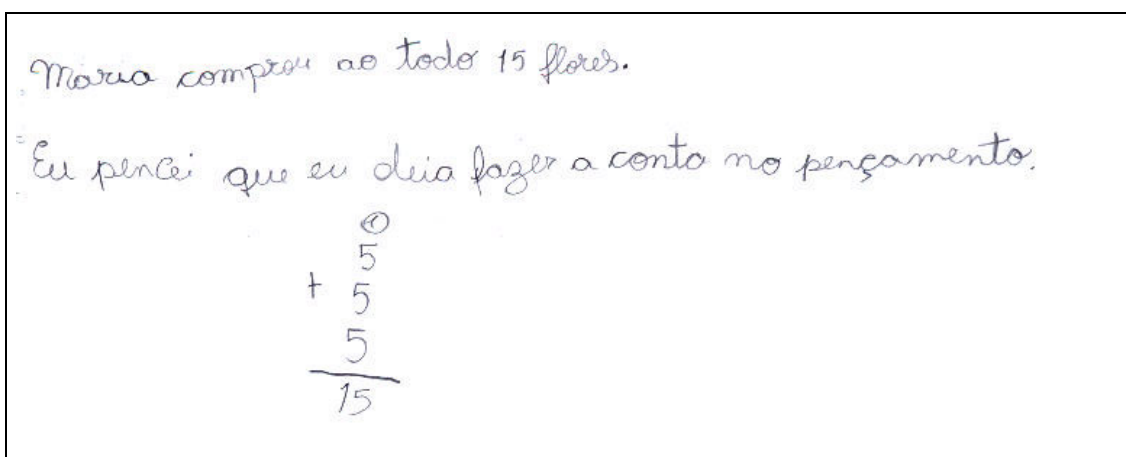 Maria comprou ao todo 15 flores.
Eu pencei que eu deia fazer a conta no pençamento.
①
5
+ 5
5
15